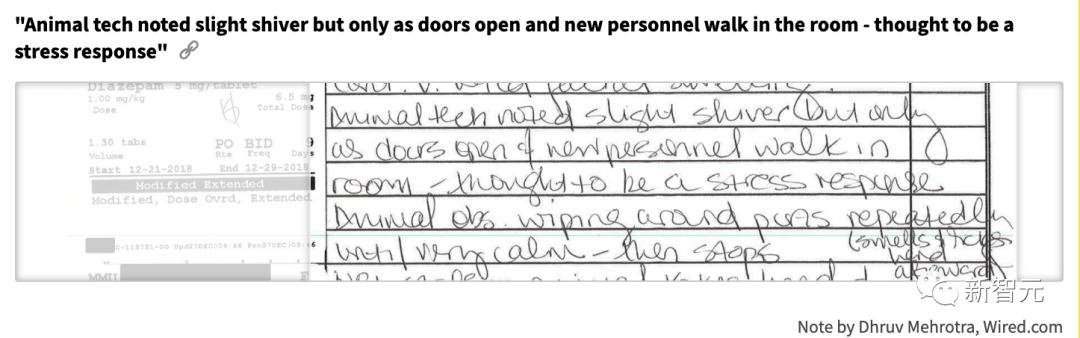 "Animal tech noted slight shiver but only as doors open and new personnel walk in the room - thought to be a
stress response"
Diazepam 5 mg/tablet
1.00 mg/kg 6.5 mg
Dose Total Dose
1.30 tabs PO BID 9
Volume Rte Freq Days
Start 12-21-2018 End 12-29-2018
Modified Extended
Modified, Dose Ovrd, Extended
Animal tech noted slight shiver (but only
as doors open & new personnel walk in
room - thought to be a stress response
Animal obs. wiping around porns repeatedly
until very calm - then stops
(smells & licks
hand
afterward)
新智元
Note by Dhruv Mehrotra, Wired.com